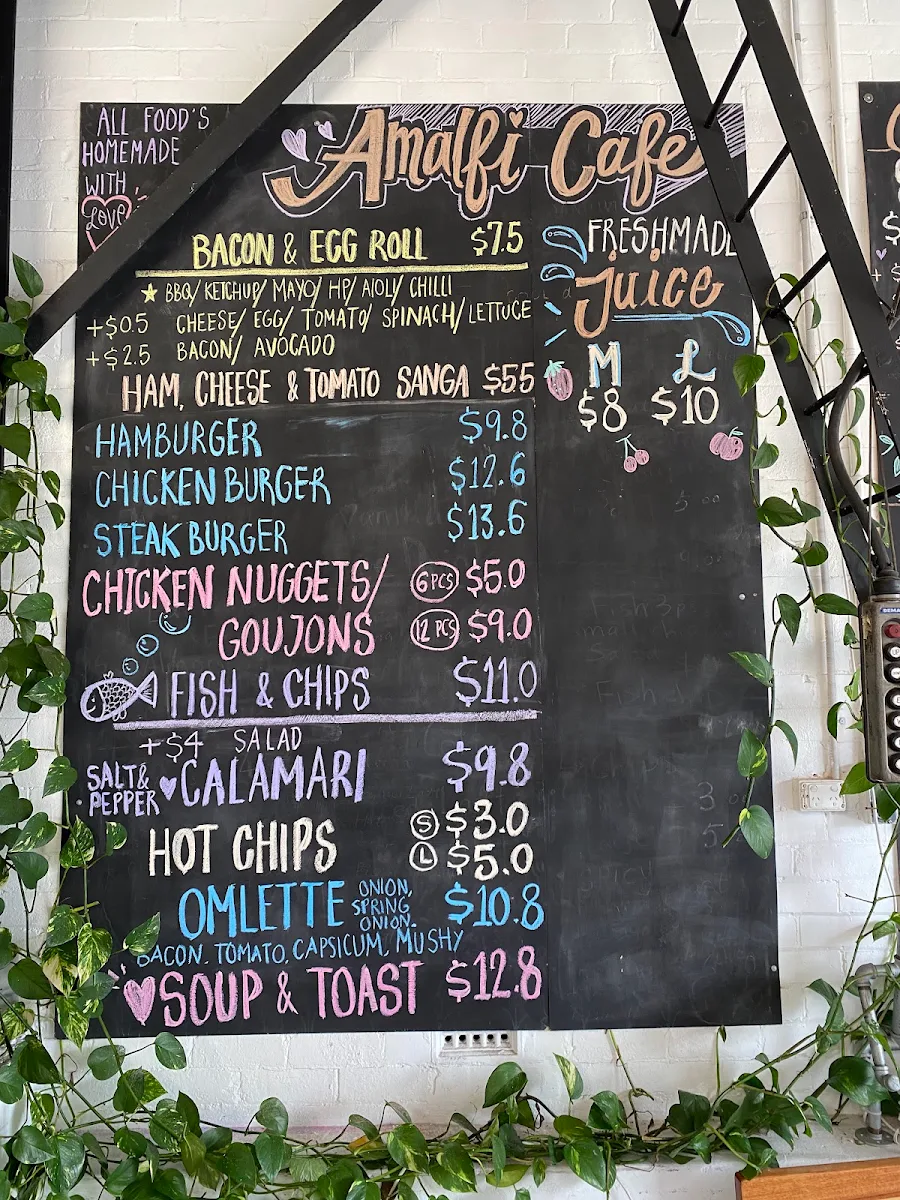 ALL FOOD'S
HOMEMADE
WITH
Love
Amalfi Cafe
BACON & EGG ROLL $7.5
BBQ/ KETCHUP/ MAYO/ HP/ AIOLI/ CHILLI
+$0.5 CHEESE/ EGG/ TOMATO/ SPINACH/ LETTUCE
+$2.5 BACON/ AVOCADO
HAM, CHEESE & TOMATO SANGA $55
HAMBURGER $9.8
CHICKEN BURGER $12.6
STEAK BURGER $13.6
CHICKEN NUGGETS/ 6PCS $5.0
GOUJONS 12 PCS $9.0
FISH & CHIPS $11.0
+$4 SALAD
SALT & PEPPER CALAMARI $9.8
HOT CHIPS S $3.0
L $5.0
OMLETTE ONION, SPRING ONION. $10.8
BACON. TOMATO. CAPSICUM, MUSHY
SOUP & TOAST $12.8
FRESHMADE
Juice
M L
$8 $10